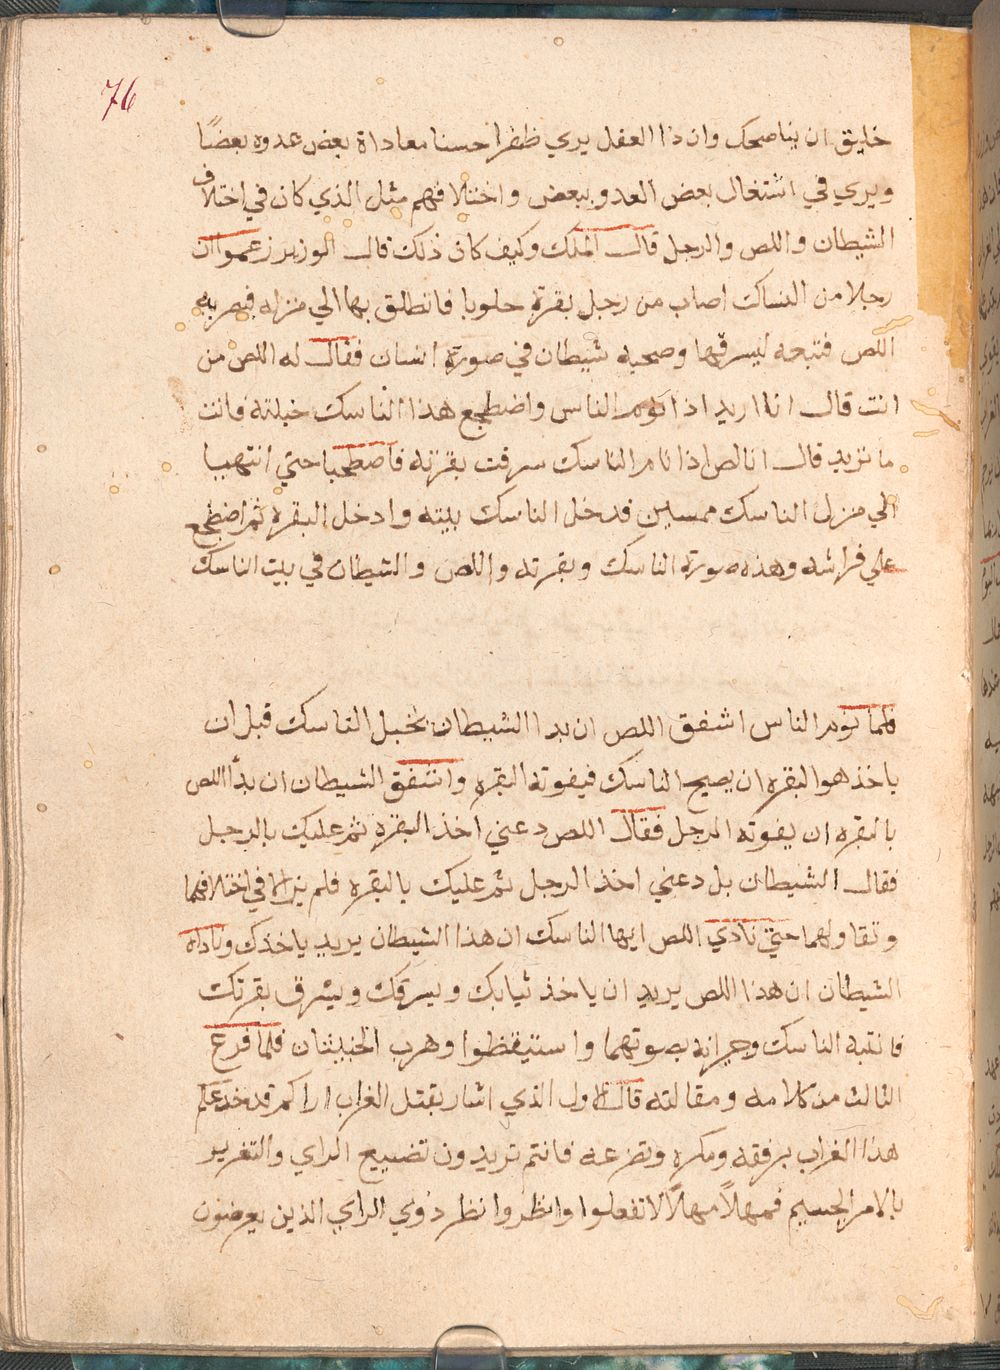 76
خليق ان يناصحك وان ذا العقل يري ظفرا حسنا معاداة بعض عدوه بعضًا
ويري في اشتغال بعض العدو ببعض واختلافهم مثل الذي كان في اختلاف
الشيطان واللص والرجل قال الملك وكيف كان ذلك قال الوزير زعموا ان
رجلا من النساك اصاب من رجل بقرة حلوبا فانطلق بها الي منزله فبصر به
اللص فتبعه ليسرقها وصحبه شيطان في صورة انسان فقال له اللص من
انت قال انا اريد اذا نوم الناس واضطجع هذا الناسك خبلته فانت
ما تريد قال انا لص اذا نام الناسك سرقت بقرته فاصطحبا حتي انتهيا
الي منزل الناسك ممسيين فدخل الناسك بيته وادخل البقره ثم اضطجع
علي فراشه وهذه صورة الناسك وبقرته واللص والشيطان في بيت الناسك
فلما نوم الناس اشفق اللص ان بدا الشيطان بخبل الناسك قبل ان
ياخذ هو البقره ان يصيح الناسك فيفوته البقره واشفق الشيطان ان بدأ اللص
بالبقره ان يفوته الرجل فقال اللص دعني اخذ البقره ثم عليك بالرجل
فقال الشيطان بل دعني اخذ الرجل ثم عليك بالبقره فلم يزالا في اختلافهما
وتقاولهما حتي نادي اللص ايها الناسك ان هذا الشيطان يريد ياخذك وناداه
الشيطان ان هذا اللص يريد ان ياخذ ثيابك ويسرقك ويسرق بقرتك
فانتبه الناسك وجيرانه بصوتهما واستيقظوا وهرب الخبيثان فلما فرغ
الثالث من كلامه ومقالته قال الاول الذي اشار بقتل الغراب اراكم قد خدعكم
هذا الغراب برفقه ومكره وتضرعه فانتم تريدون تضييع الراي والتغرير
بالامر الجسيم فمهلاً مهلاً لا تفعلوا وانظروا نظر ذوي الراي الذين يعرضون